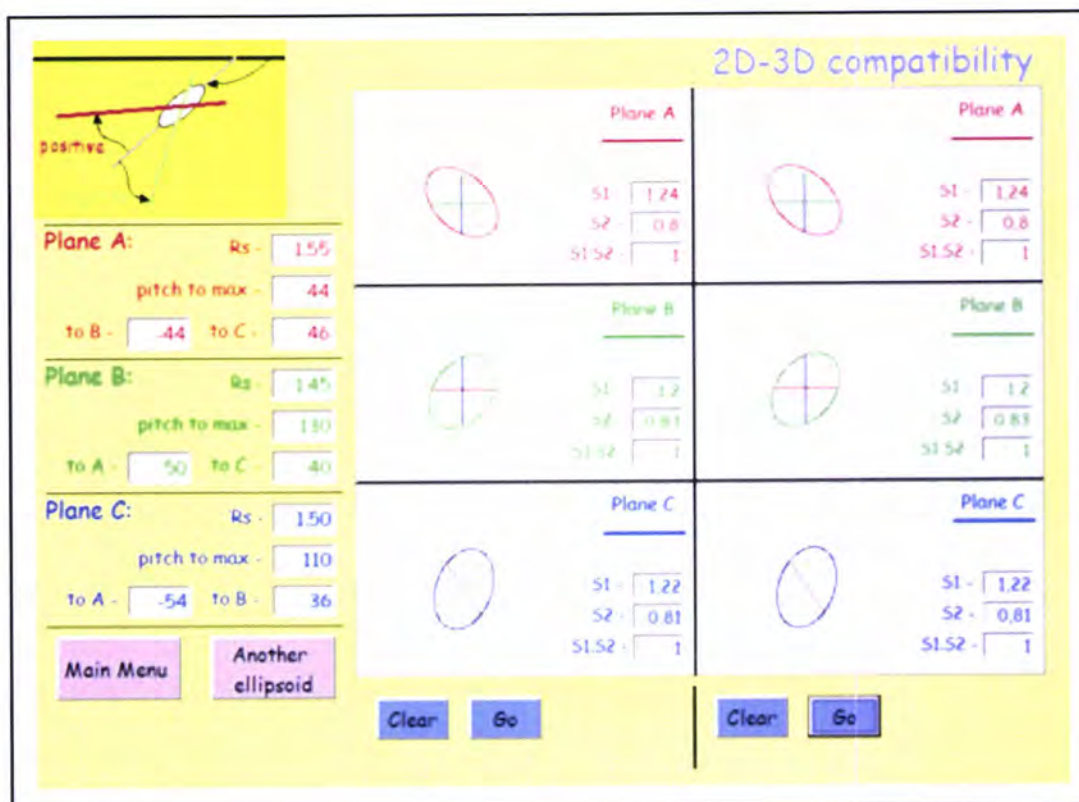 2D-3D compatibility
positive
Plane A:
Rs - 1.55
pitch to max - 44
to B - -44 to C - 46
Plane B:
Rs - 1.45
pitch to max - 130
to A - 50 to C - 40
Plane C:
Rs - 1.50
pitch to max - 110
to A - -54 to B - 36
Main Menu
Another
ellipsoid
Plane A
S1 - 1.24
S2 - 0.8
S1.S2 - 1
Plane B
S1 - 1.2
S2 - 0.83
S1.S2 - 1
Plane C
S1 - 1.22
S2 - 0.81
S1.S2 - 1
Clear Go
Plane A
S1 - 1.24
S2 - 0.8
S1.S2 - 1
Plane B
S1 - 1.2
S2 - 0.83
S1.S2 - 1
Plane C
S1 - 1.22
S2 - 0.81
S1.S2 - 1
Clear Go